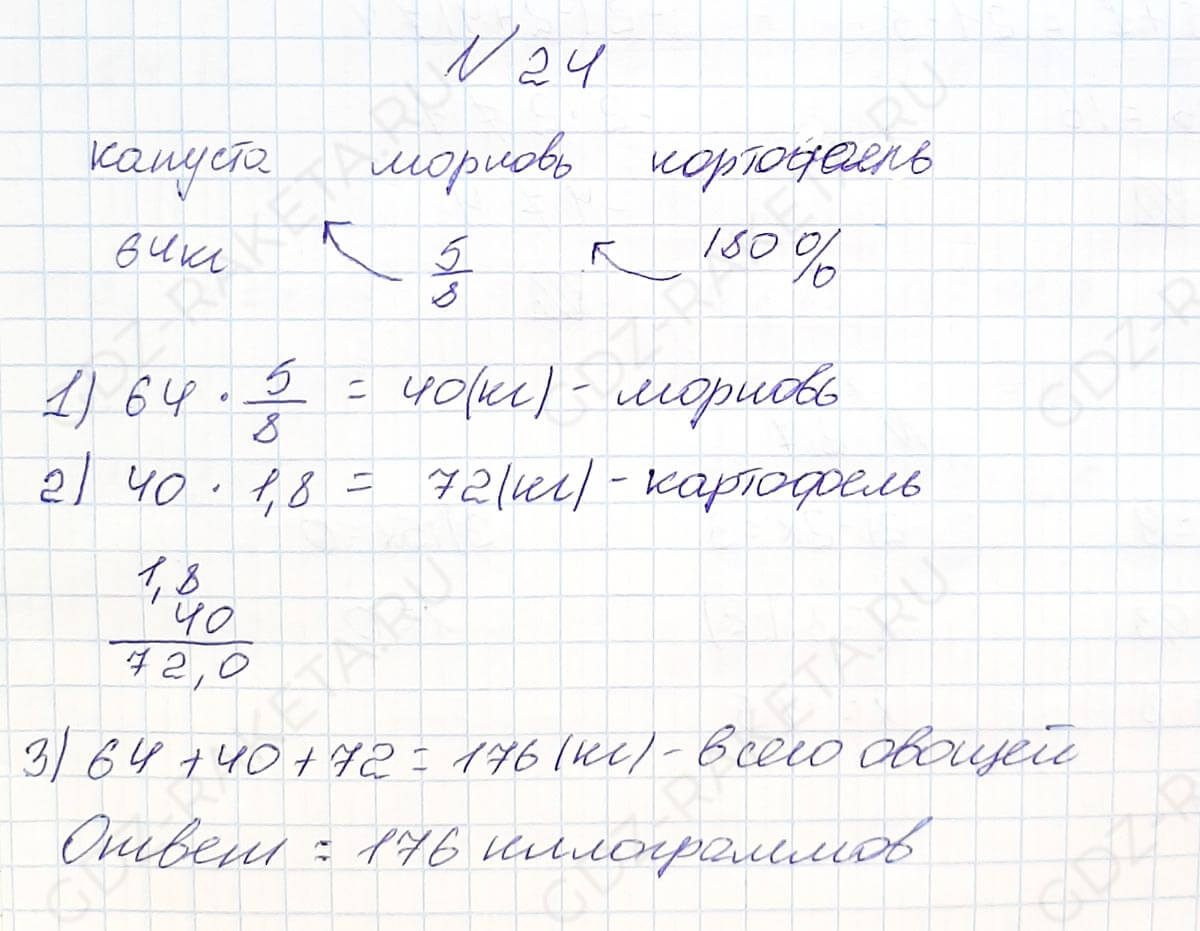 № 24
капуста морковь картофель
64кг 5/8 180%
1) 64 · 5/8 = 40(кг) - морковь
2) 40 · 1,8 = 72(кг) - картофель
1,8
40
72,0
3) 64 + 40 + 72 = 176 (кг) - всего овощей
Ответ = 176 киллограммов
GDZ-RAKETA.RU